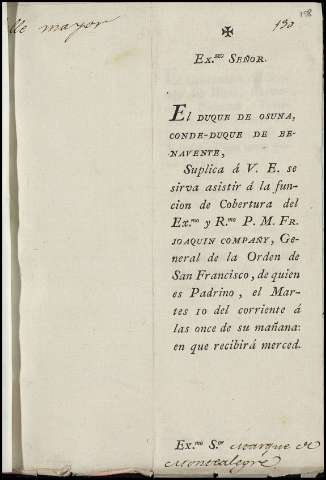 lle mayor
130
158
✠
Ex.mo SEÑOR.
EL DUQUE DE OSUNA,
CONDE-DUQUE DE BE-
NAVENTE,
Suplica á V. E. se
sirva asistir á la fun-
cion de Cobertura del
Ex.mo y R.mo P. M. FR.
JOAQUIN COMPAÑY, Ge-
neral de la Orden de
San Francisco, de quien
es Padrino, el Mar-
tes 10 del corriente á
las once de su mañana:
en que recibirá merced.
Ex.mo S.or Marques de
Montealegre